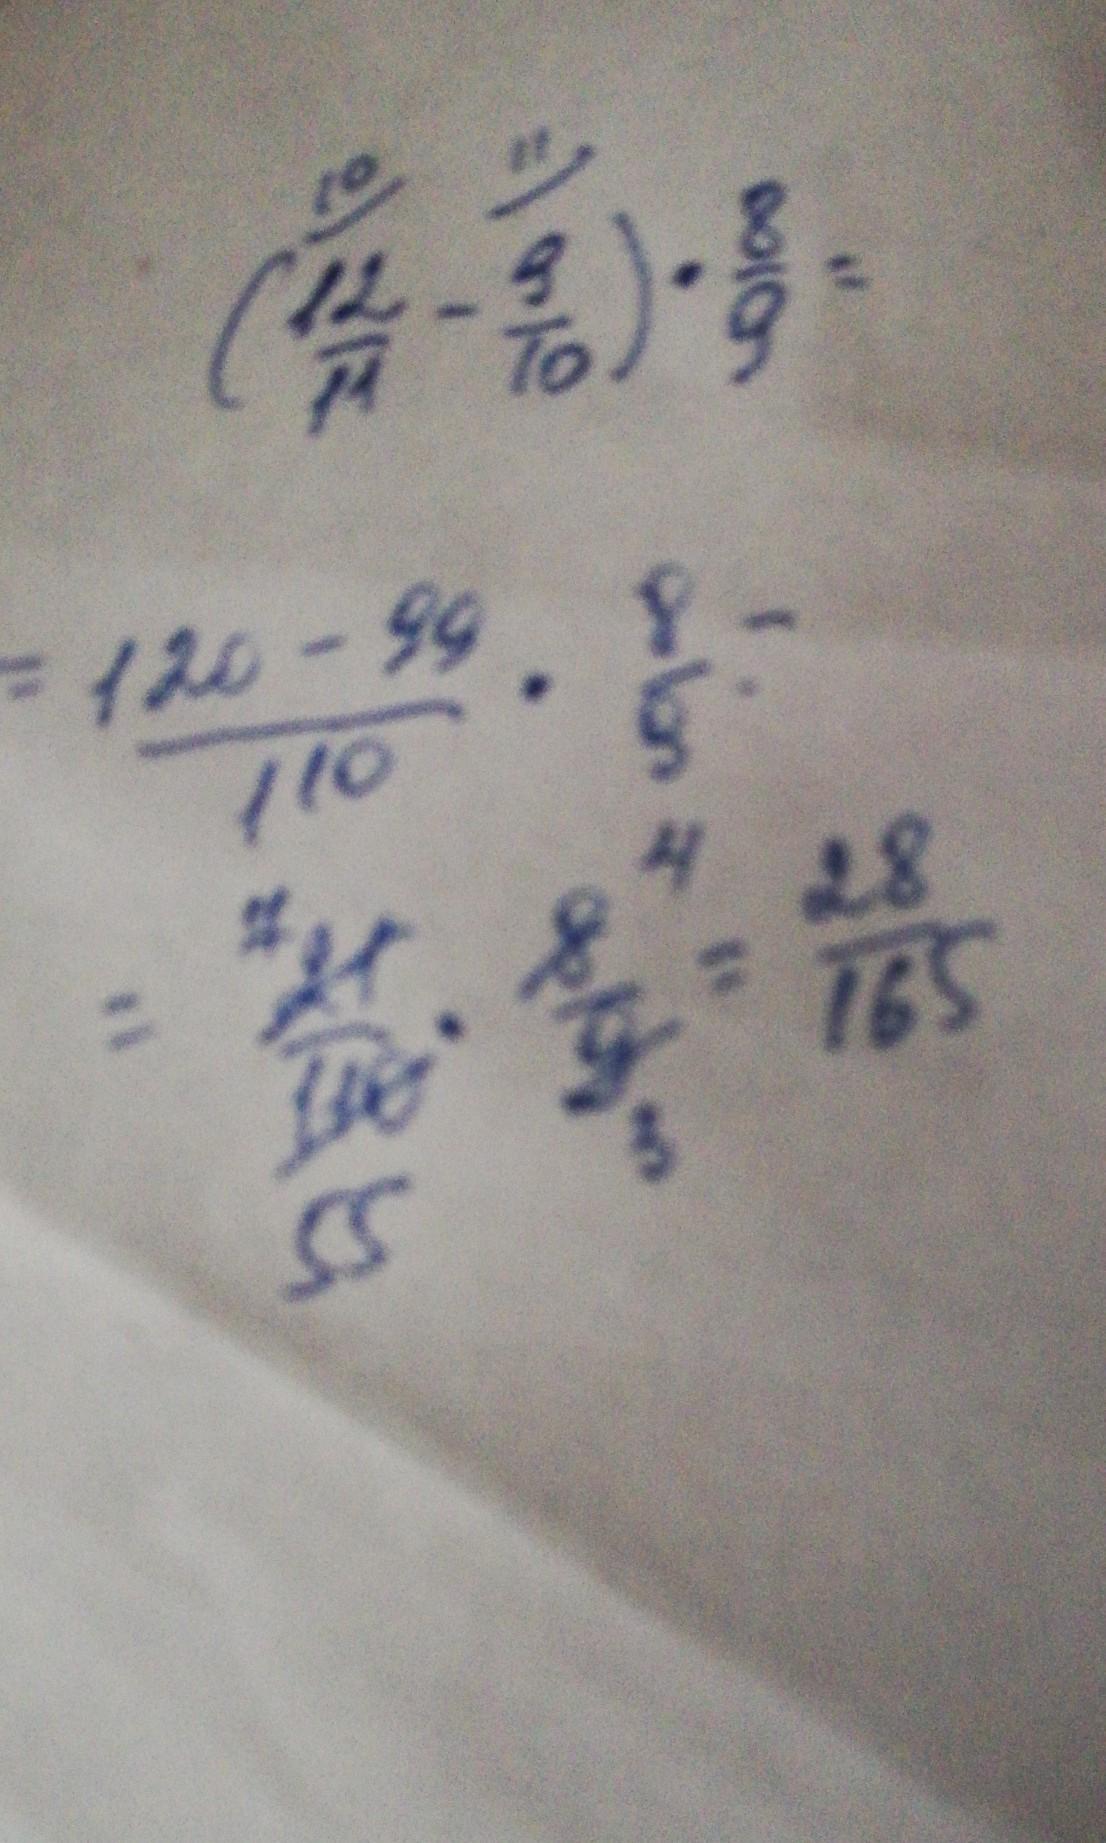 (10/ 12/11 - 11/ 9/10) · 8/9 =
= 120 - 99/110 · 8/9 =
= 7 21/110 55 · 8 4/9 3 = 28/165